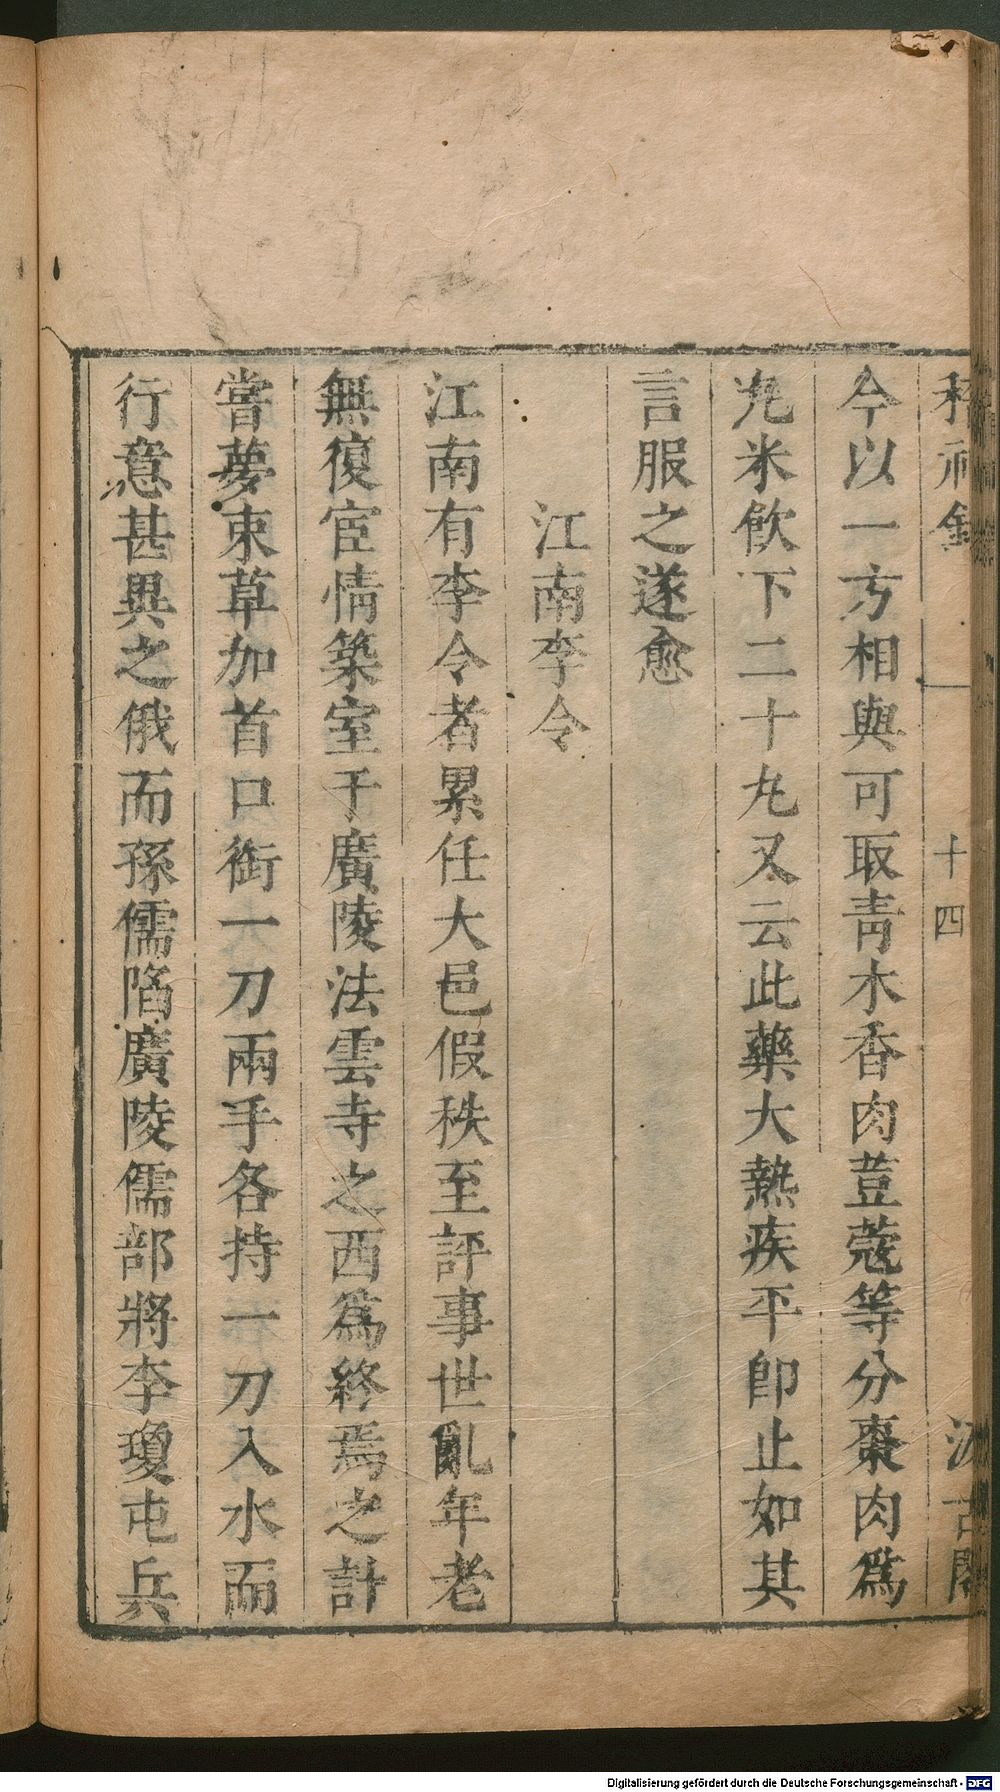 稽神錄 一 十四 汲古閣
今以一方相與可取靑木香肉荳蔻等分棗肉爲
丸米飮下二十丸又云此藥大熱疾平卽止如其
言服之遂愈
江南李令
江南有李令者累任大邑假秩至評事世亂年老
無復宦情築室于廣陵法雲寺之西爲終焉之計
嘗夢束草加首口銜一刀兩手各持一刀入水而
行意甚異之俄而孫儒陷廣陵儒部將李瓊屯兵
Digitalisierung gefördert durch die Deutsche Forschungsgemeinschaft - DFG